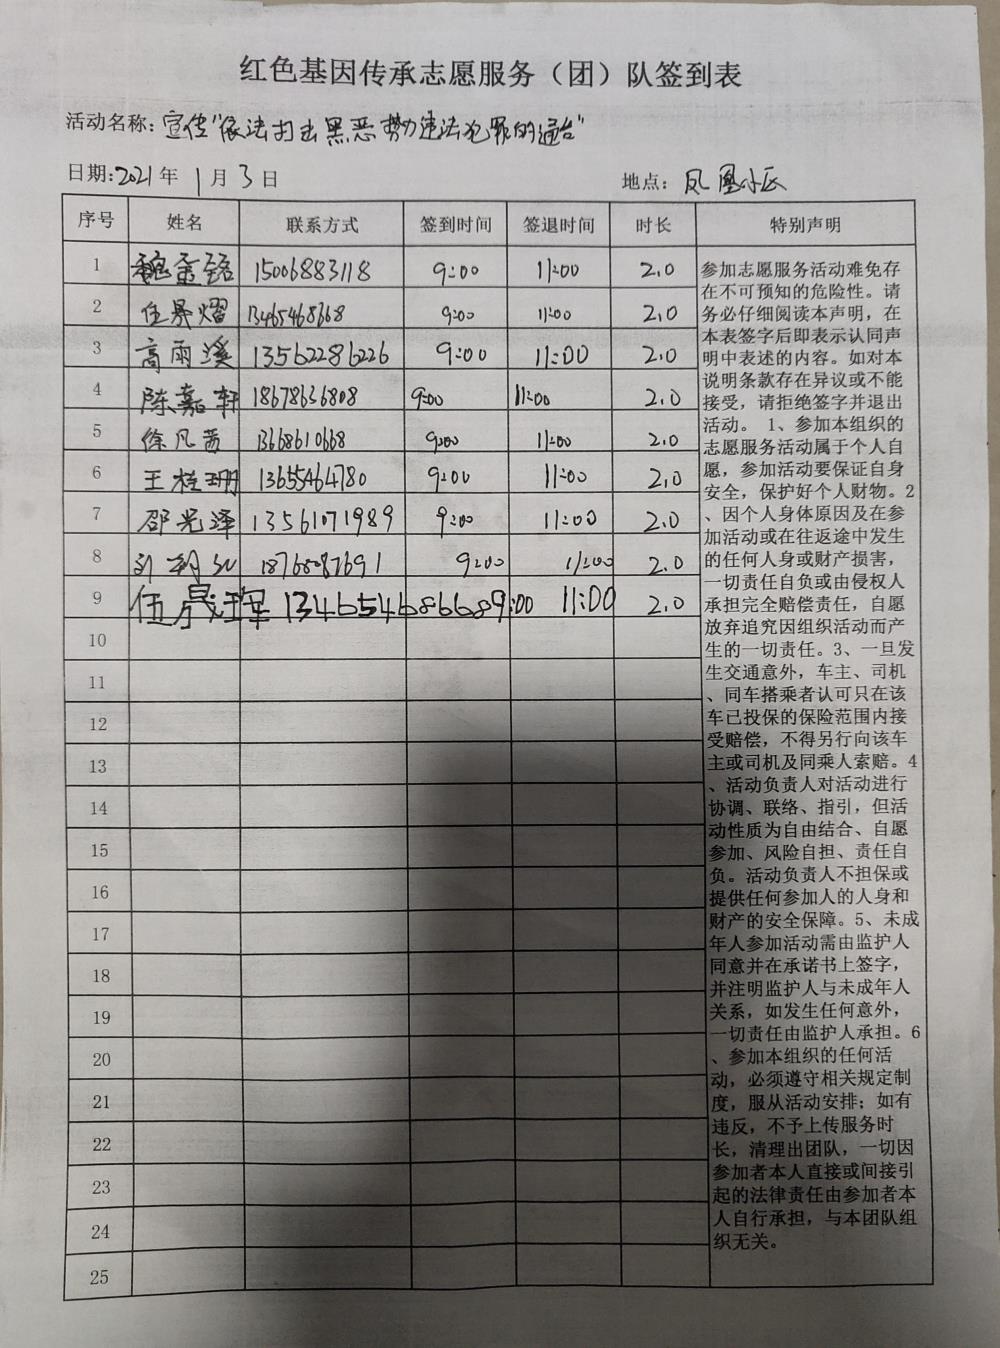 红色基因传承志愿服务（团）队签到表
活动名称：宣传"依法打击黑恶势力违法犯罪的通告"
日期：2021年 1月 3日 地点：凤凰小区
序号 姓名 联系方式 签到时间 签退时间 时长 特别声明
1 魏金铭 15006883118 9:00 11:00 2.0
2 任晟熠 13465468668 9:00 11:00 2.0
3 高雨溪 13562286226 9:00 11:00 2.0
4 陈嘉轩 18678636808 9:00 11:00 2.0
5 徐凡茜 13668610668 9:00 11:00 2.0
6 王桂珊 13655464780 9:00 11:00 2.0
7 邵光泽 13561071989 9:00 11:00 2.0
8 9:00 11:00 2.0
9 13465468668 9:00 11:00 2.0
10
11
12
13
14
15
16
17
18
19
20
21
22
23
24
25
参加志愿服务活动难免存
在不可预知的危险性。请
务必仔细阅读本声明，在
本表签字后即表示认同声
明中表述的内容。如对本
说明条款存在异议或不能
接受，请拒绝签字并退出
活动。 1、参加本组织的
志愿服务活动属于个人自
愿，参加活动要保证自身
安全，保护好个人财物。2
、因个人身体原因及在参
加活动或在往返途中发生
的任何人身或财产损害，
一切责任自负或由侵权人
承担完全赔偿责任，自愿
放弃追究因组织活动而产
生的一切责任。3、一旦发
生交通意外，车主、司机
、同车搭乘者认可只在该
车已投保的保险范围内接
受赔偿，不得另行向该车
主或司机及同乘人索赔。4
、活动负责人对活动进行
协调、联络、指引，但活
动性质为自由结合、自愿
参加、风险自担、责任自
负。活动负责人不担保或
提供任何参加人的人身和
财产的安全保障。5、未成
年人参加活动需由监护人
同意并在承诺书上签字，
并注明监护人与未成年人
关系，如发生任何意外，
一切责任由监护人承担。6
、参加本组织的任何活
动，必须遵守相关规定制
度，服从活动安排；如有
违反，不予上传服务时
长，清理出团队，一切因
参加者本人直接或间接引
起的法律责任由参加者本
人自行承担，与本团队组
织无关。